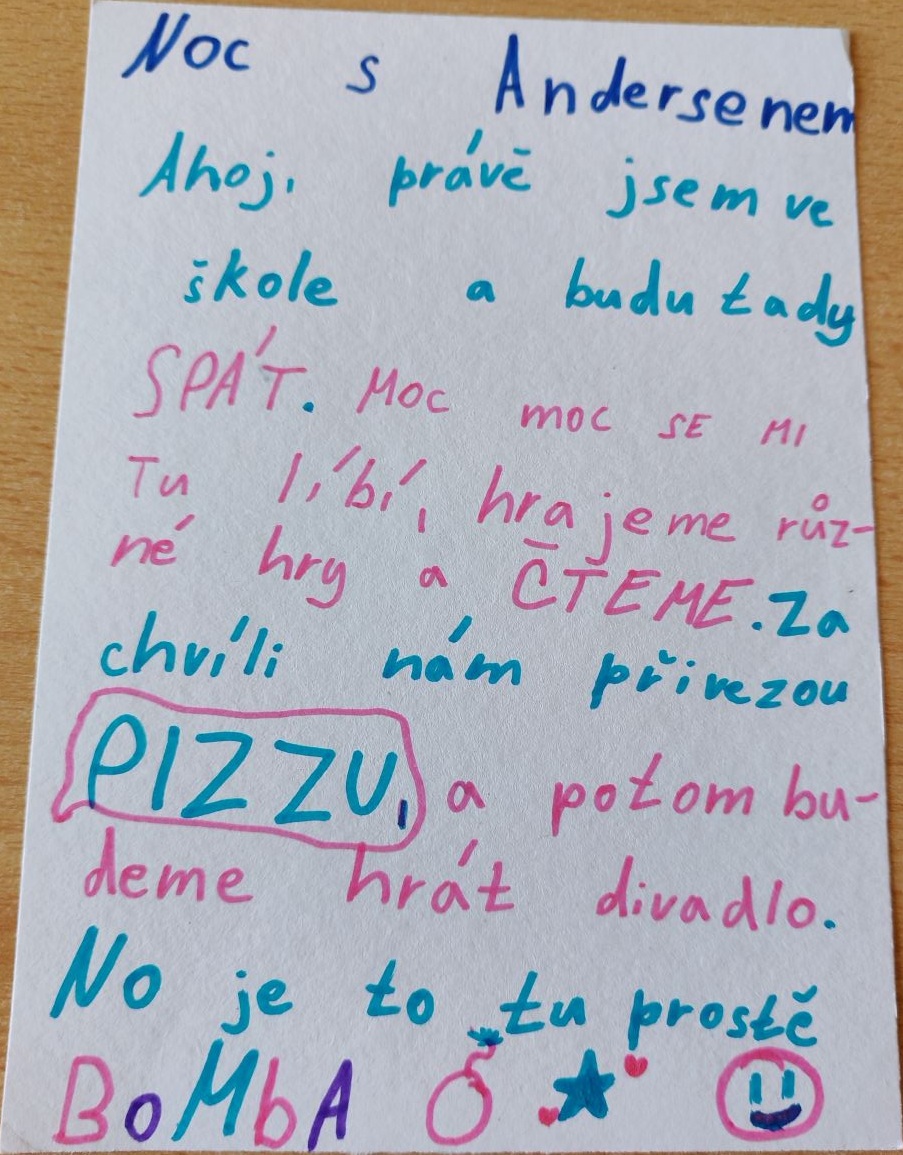 Noc s Andersenem
Ahoj, právě jsem ve
škole a budu tady
SPÁT. Moc moc SE MI
Tu líbí, hrajeme růz-
né hry a ČTEME. Za
chvíli nám přivezou
PIZZU, a potom bu-
deme hrát divadlo.
No je to tu prostě
BoMbA